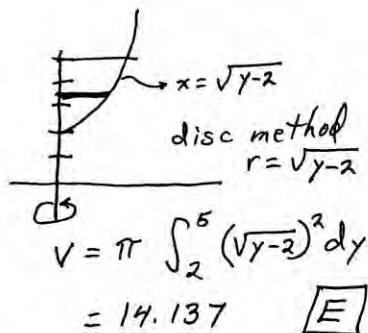 x = √(y-2)
disc method
r = √(y-2)
V = π ∫₂⁵ (√(y-2))² dy
= 14.137 E